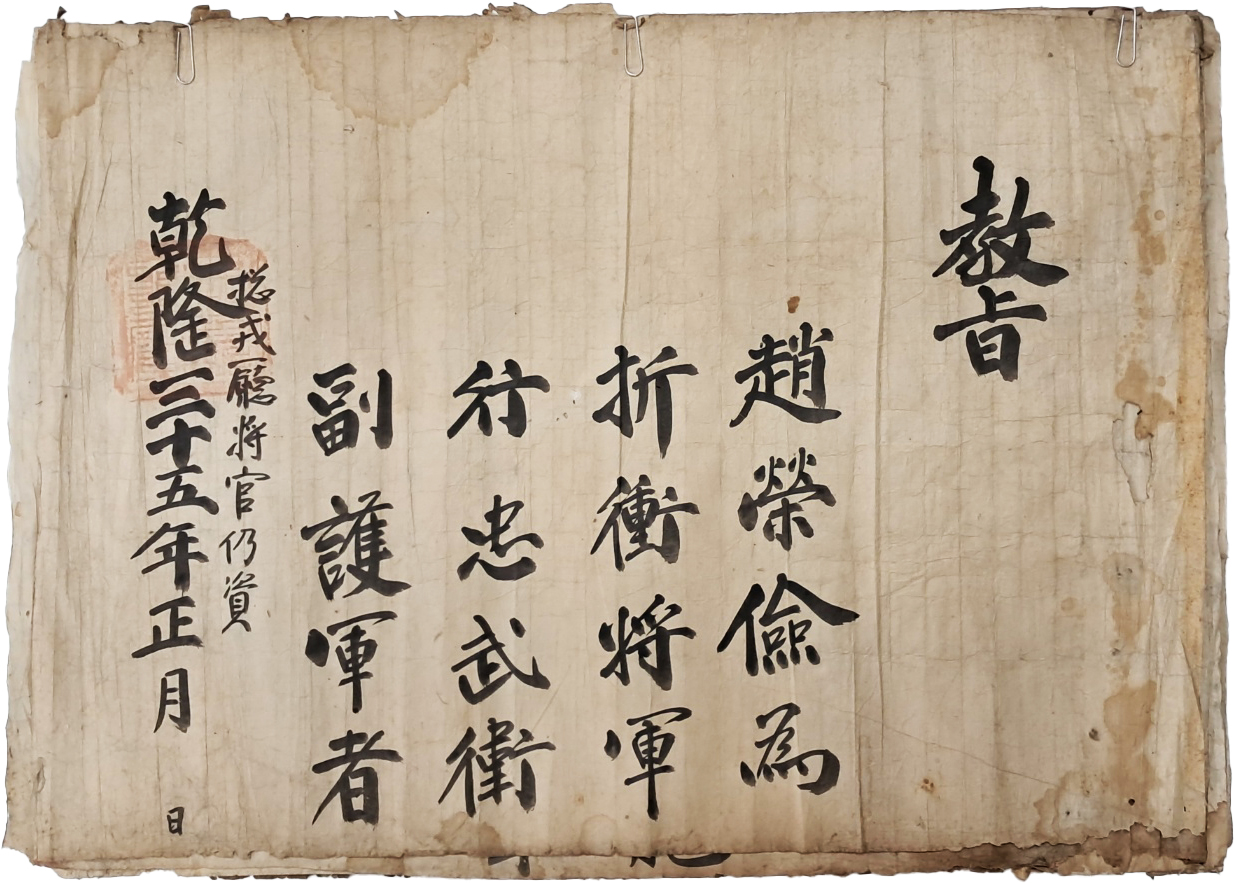 敎旨
趙榮儉為
折衝將軍
行忠武衛
副護軍者
捴戎廳將官仍資
乾隆三十五年正月 日